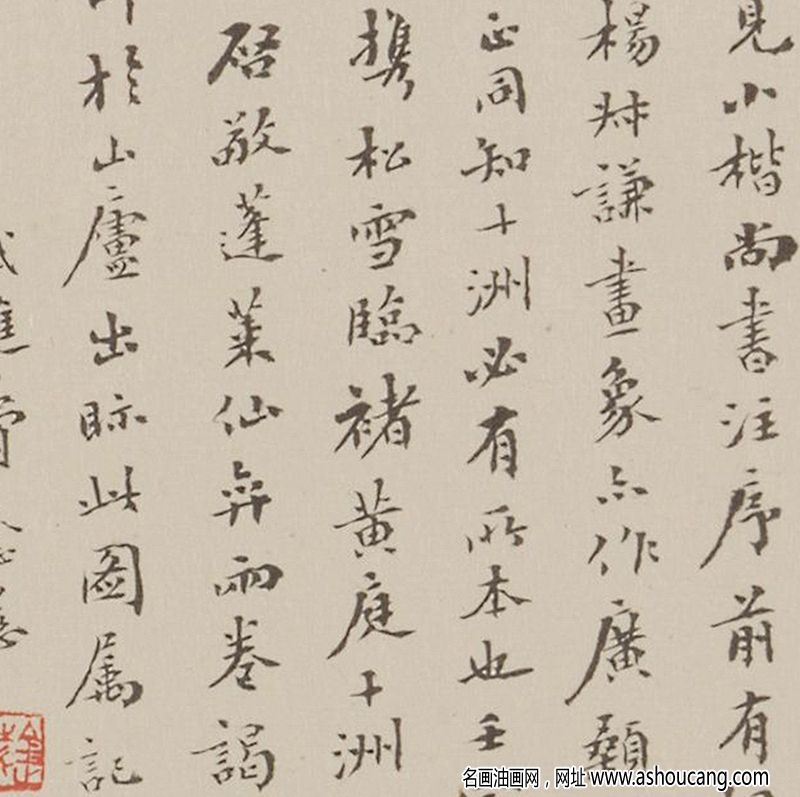 見小楷尚書注序前有
楊﨎謙畫象亦作廣顙
正同知十洲必有所本也壬
携松雪臨褚黄庭十洲
啓敬蓬萊仙弈兩卷謁
於山廬出眎此圖属記
名画油画网，网址 www.ashoucang.com